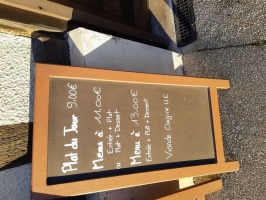 Plat du Jour 9,00€
Menu à 11,00€
Entrée + Plat
ou Plat + Dessert
Menu à 13,00€
Entrée + Plat + Dessert
Viande Origine U.E